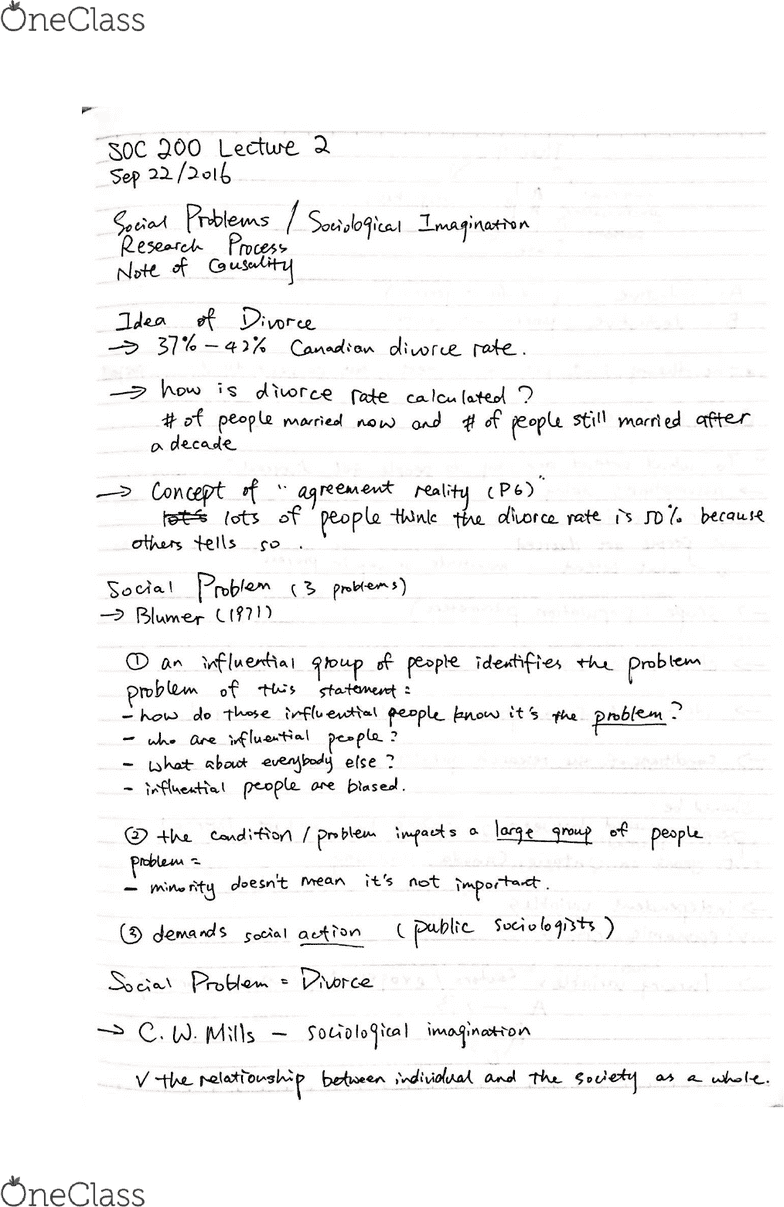 OneClass
SOC 200 Lecture 2
Sep 22/2016
Social Problems / Sociological Imagination
Research Process
Note of Causality
Idea of Divorce
→ 37% - 42% Canadian divorce rate.
→ how is divorce rate calculated?
# of people married now and # of people still married after
a decade
→ Concept of "agreement reality (P6)"
lots lots of people think the divorce rate is 50% because
others tells so.
Social Problem (3 problems)
→ Blumer (1971)
① an influential group of people identifies the problem
problem of this statement:
- how do those influential people know it's the problem?
- who are influential people?
- What about everybody else?
- influential people are biased.
② the condition / problem impacts a large group of people
problem =
- minority doesn't mean it's not important.
③ demands social action (public sociologists)
Social Problem = Divorce
→ C. W. Mills - sociological imagination
V the relationship between individual and the society as a whole.
OneClass